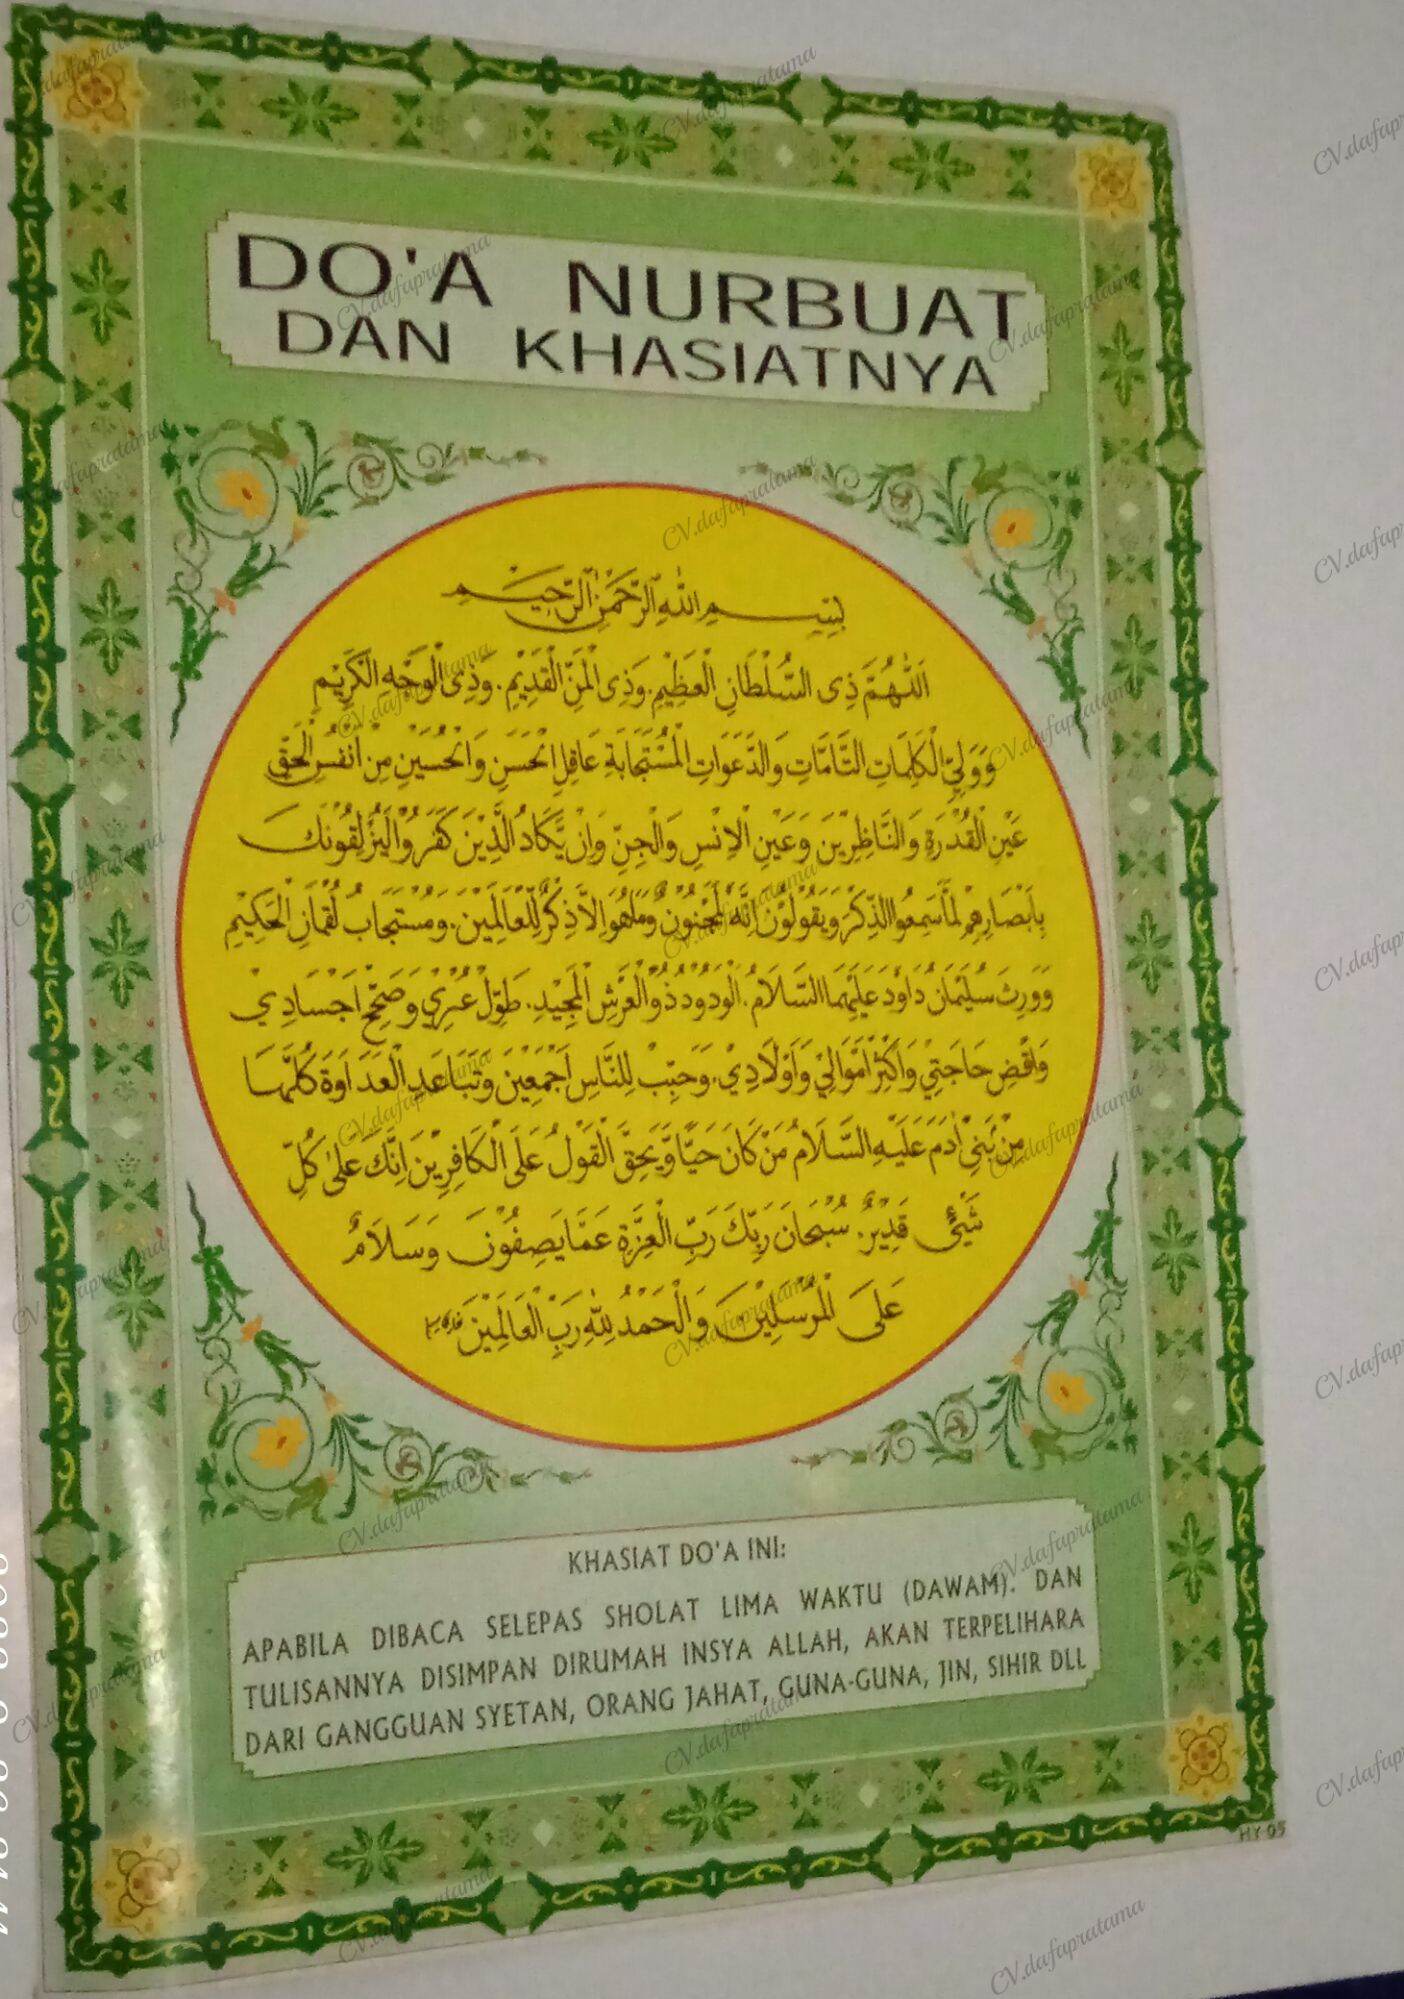 DO'A NURBUAT
DAN KHASIATNYA
بِسْمِ اللهِ الرَّحْمٰنِ الرَّحِيْمِ
اَللّٰهُمَّ ذِى السُّلْطَانِ الْعَظِيْمِ. وَذِى الْمَنِّ الْقَدِيْمِ. وَذِى الْوَجْهِ الْكَرِيْمِ
وَوَلِيِّ الْكَلِمَاتِ التَّامَّاتِ وَالدَّعَوَاتِ الْمُسْتَجَابَةِ عَاقِلِ الْحَسَنِ وَالْحُسَيْنِ مِنْ اَنْفُسِ الْحَقِّ
عَيْنِ الْقُدْرَةِ وَالنَّاظِرِيْنَ وَعَيْنِ الْاِنْسِ وَالْجِنِّ وَاِنْ يَّكَادُ الَّذِيْنَ كَفَرُوْا لَيُزْلِقُوْنَكَ
بِاَبْصَارِهِمْ لَمَّا سَمِعُوا الذِّكْرَ وَيَقُوْلُوْنَ اِنَّهُ لَمَجْنُوْنٌ وَمَا هُوَ اِلَّا ذِكْرٌ لِلْعَالَمِيْنَ. وَمُسْتَجَابُ لُقْمَانِ الْحَكِيْمِ
وَوَرِثَ سُلَيْمَانُ دَاوُدَ عَلَيْهِمَا السَّلَامُ. الْوَدُوْدُ ذُو الْعَرْشِ الْمَجِيْدِ. طَوِّلْ عُمْرِيْ وَصَحِّحْ اَجْسَادِيْ
وَاقْضِ حَاجَتِيْ وَاَكْثِرْ اَمْوَالِيْ وَاَوْلَادِيْ. وَحَبِّبْ لِلنَّاسِ اَجْمَعِيْنَ وَتَبَاعَدِ الْعَدَاوَةَ كُلَّهَا
مِنْ بَنِيْ اٰدَمَ عَلَيْهِ السَّلَامُ مَنْ كَانَ حَيًّا وَّيَحِقَّ الْقَوْلُ عَلَى الْكَافِرِيْنَ اِنَّكَ عَلٰى كُلِّ
شَيْئٍ قَدِيْرٌ. سُبْحَانَ رَبِّكَ رَبِّ الْعِزَّةِ عَمَّا يَصِفُوْنَ وَسَلَامٌ
عَلَى الْمُرْسَلِيْنَ وَالْحَمْدُ لِلّٰهِ رَبِّ الْعَالَمِيْنَ
KHASIAT DO'A INI:
APABILA DIBACA SELEPAS SHOLAT LIMA WAKTU (DAWAM). DAN
TULISANNYA DISIMPAN DIRUMAH INSYA ALLAH, AKAN TERPELIHARA
DARI GANGGUAN SYETAN, ORANG JAHAT, GUNA-GUNA, JIN, SIHIR DLL
HY 05
CV.dafapratama